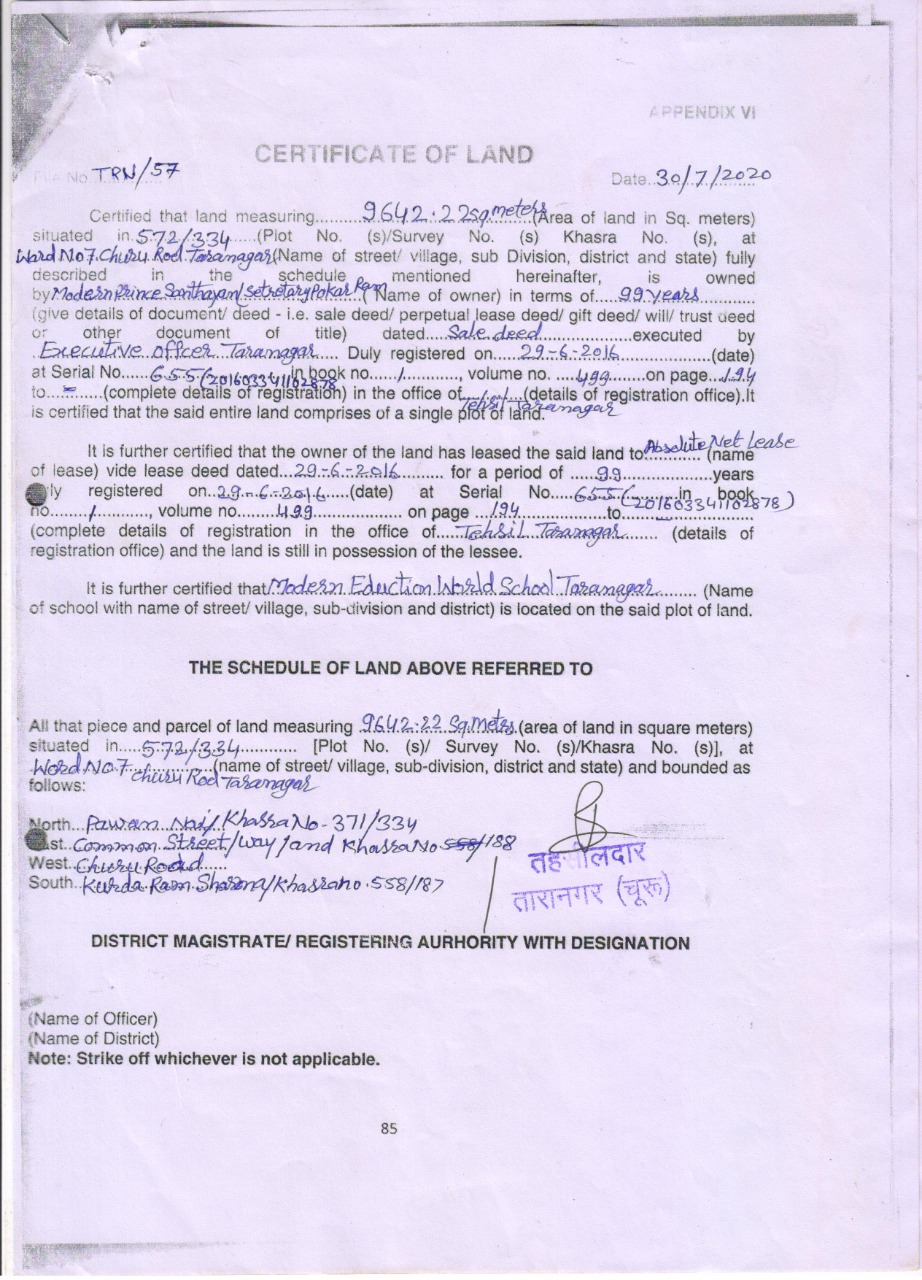 APPENDIX VI
CERTIFICATE OF LAND
File No TRN/57 Date..30/7/2020
Certified that land measuring.........9642.22sq meters(Area of land in Sq. meters)
situated in.572/334.....(Plot No. (s)/Survey No. (s) Khasra No. (s), at
Ward No7.Churu.Rod.Taranagar(Name of street/ village, sub Division, district and state) fully
described in the schedule mentioned hereinafter, is owned
by Modern Prince Santhayan/Setretary Pokar Ram (Name of owner) in terms of....99 years............
(give details of document/ deed - i.e. sale deed/ perpetual lease deed/ gift deed/ will/ trust deed
or other document of title) dated...Sale.deed..................executed by
Executive officer Taranagar.... Duly registered on.....29-6-2016...................(date)
at Serial No......655(201603341102878 in book no....1.........., volume no. ....499.......on page..194
to...-......(complete details of registration) in the office of Tehsil Taranagar (details of registration office).It
is certified that the said entire land comprises of a single plot of land.
It is further certified that the owner of the land has leased the said land to Absolute Net Lease (name
of lease) vide lease deed dated...29-6-2016......... for a period of ...99...................years
ly registered on..29-6-2016.....(date) at Serial No....655(20160334102878) in book
no......1..........., volume no.......499................... on page ..194..................to....................
(complete details of registration in the office of....Tehsil Taranagar....... (details of
registration office) and the land is still in possession of the lessee.
It is further certified that Modern Eduction World School Taranagar......... (Name
of school with name of street/ village, sub-division and district) is located on the said plot of land.
THE SCHEDULE OF LAND ABOVE REFERRED TO
All that piece and parcel of land measuring 9642.22 Sq.Meters.(area of land in square meters)
situated in.....572/334............ [Plot No. (s)/ Survey No. (s)/Khasra No. (s)], at
Word No 7 Churu Rod Taranagar (name of street/ village, sub-division, district and state) and bounded as
follows:
North.. Pawan Nai/ Khasra No - 371/334
ast.. Common Street/way/and Khasra No 558/188
West..Churu Road.....
South..Kurda Ram Sharma/Khasra no.558/187
तहसीलदार
तारानगर (चूरू)
DISTRICT MAGISTRATE/ REGISTERING AURHORITY WITH DESIGNATION
(Name of Officer)
(Name of District)
Note: Strike off whichever is not applicable.
85